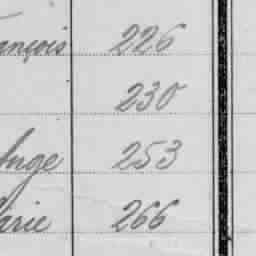 ançois 226
230
Ange 253
arie 266